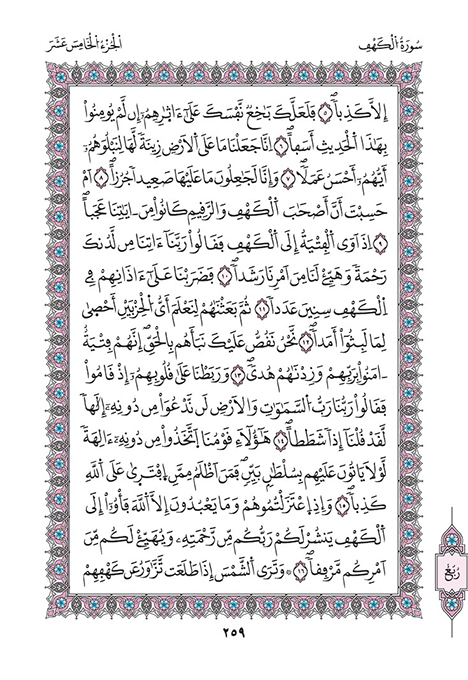 سُورَةُ الْكَهْفِ
الْجُزْءُ الْخَامِسَ عَشَرَ
إِلَّا كَذِباًۖ ٥ فَلَعَلَّكَ بَٰخِعٞ نَّفْسَكَ عَلَىٰٓ ءَاثٰ۪رِهِمُۥٓ إِن لَّمْ يُومِنُواْ
بِهَٰذَا اَ۬لْحَدِيثِ أَسَفاًۖ ٦ اِنَّا جَعَلْنَا مَا عَلَى اَ۬لَارْضِ زِينَةٗ لَّهَا لِنَبْلُوَهُمُۥٓ
أَيُّهُمُۥٓ أَحْسَنُ عَمَلاٗۖ ٧ وَإِنَّا لَجَٰعِلُونَ مَا عَلَيْهَا صَعِيداٗ جُرُزاًۖ ٨ اَمْ
حَسِبْتَ أَنَّ أَصْحَٰبَ اَ۬لْكَهْفِ وَالرَّقِيمِ كَانُواْ مِنَ اٰيَٰتِنَا عَجَباًۖ
٩ اِذَ اَوَى اَ۬لْفِتْيَةُ إِلَى اَ۬لْكَهْفِ فَقَالُواْ رَبَّنَآ ءَاتِنَا مِن لَّدُنكَ
رَحْمَةٗ وَهَيِّۓْ لَنَا مِنَ اَمْرِنَا رَشَداٗۖ ١٠ فَضَرَبْنَا عَلَىٰٓ ءَاذَانِهِمْ فِے
اِ۬لْكَهْفِ سِنِينَ عَدَداٗۖ ١١ ثُمَّ بَعَثْنَٰهُمْ لِنَعْلَمَ أَيُّ اُ۬لْحِزْبَيْنِ أَحْصَىٰ
لِمَا لَبِثُوٓاْ أَمَداٗۖ ١٢ نَّحْنُ نَقُصُّ عَلَيْكَ نَبَأَهُم بِالْحَقِّۖ إِنَّهُمْ فِتْيَةٌ
اٰمَنُواْ بِرَبِّهِمْ وَزِدْنَٰهُمْ هُدىٗۖ ١٣ وَرَبَطْنَا عَلَىٰ قُلُوبِهِمُۥٓ إِذْ قَامُواْ
فَقَالُواْ رَبُّنَا رَبُّ اُ۬لسَّمَٰوَٰتِ وَالَارْضِ لَن نَّدْعُوَاْ مِن دُونِهِۦٓ إِلَٰهاٗ
لَّقَدْ قُلْنَآ إِذاٗ شَطَطاًۖ ١٤ هَٰٓؤُلَآءِ قَوْمُنَا اَ۪تَّخَذُواْ مِن دُونِهِۦٓ ءَالِهَةٗ
لَّوْلَا يَاتُونَ عَلَيْهِم بِسُلْطَٰنِۢ بَيِّنٖۖ فَمَنَ اَظْلَمُ مِمَّنِ اِ۪فْتَر۪ىٰ عَلَى اَ۬للَّهِ
كَذِباٗۖ ١٥ وَإِذِ اِ۪عْتَزَلْتُمُوهُمْ وَمَا يَعْبُدُونَ إِلَّا اَ۬للَّهَ فَأْوُۥٓاْ إِلَى
اَ۬لْكَهْفِ يَنشُرْ لَكُمْ رَبُّكُم مِّن رَّحْمَتِهِۦ وَيُهَيِّۓْ لَكُم مِّنَ
اَمْرِكُم مَّرْفِقاٗۖ ١٦ ۞ وَتَرَى اَ۬لشَّمْسَ إِذَا طَلَعَت تَّزَّٰوَرُ عَن كَهْفِهِمْ
رُبُع
٢٥٩